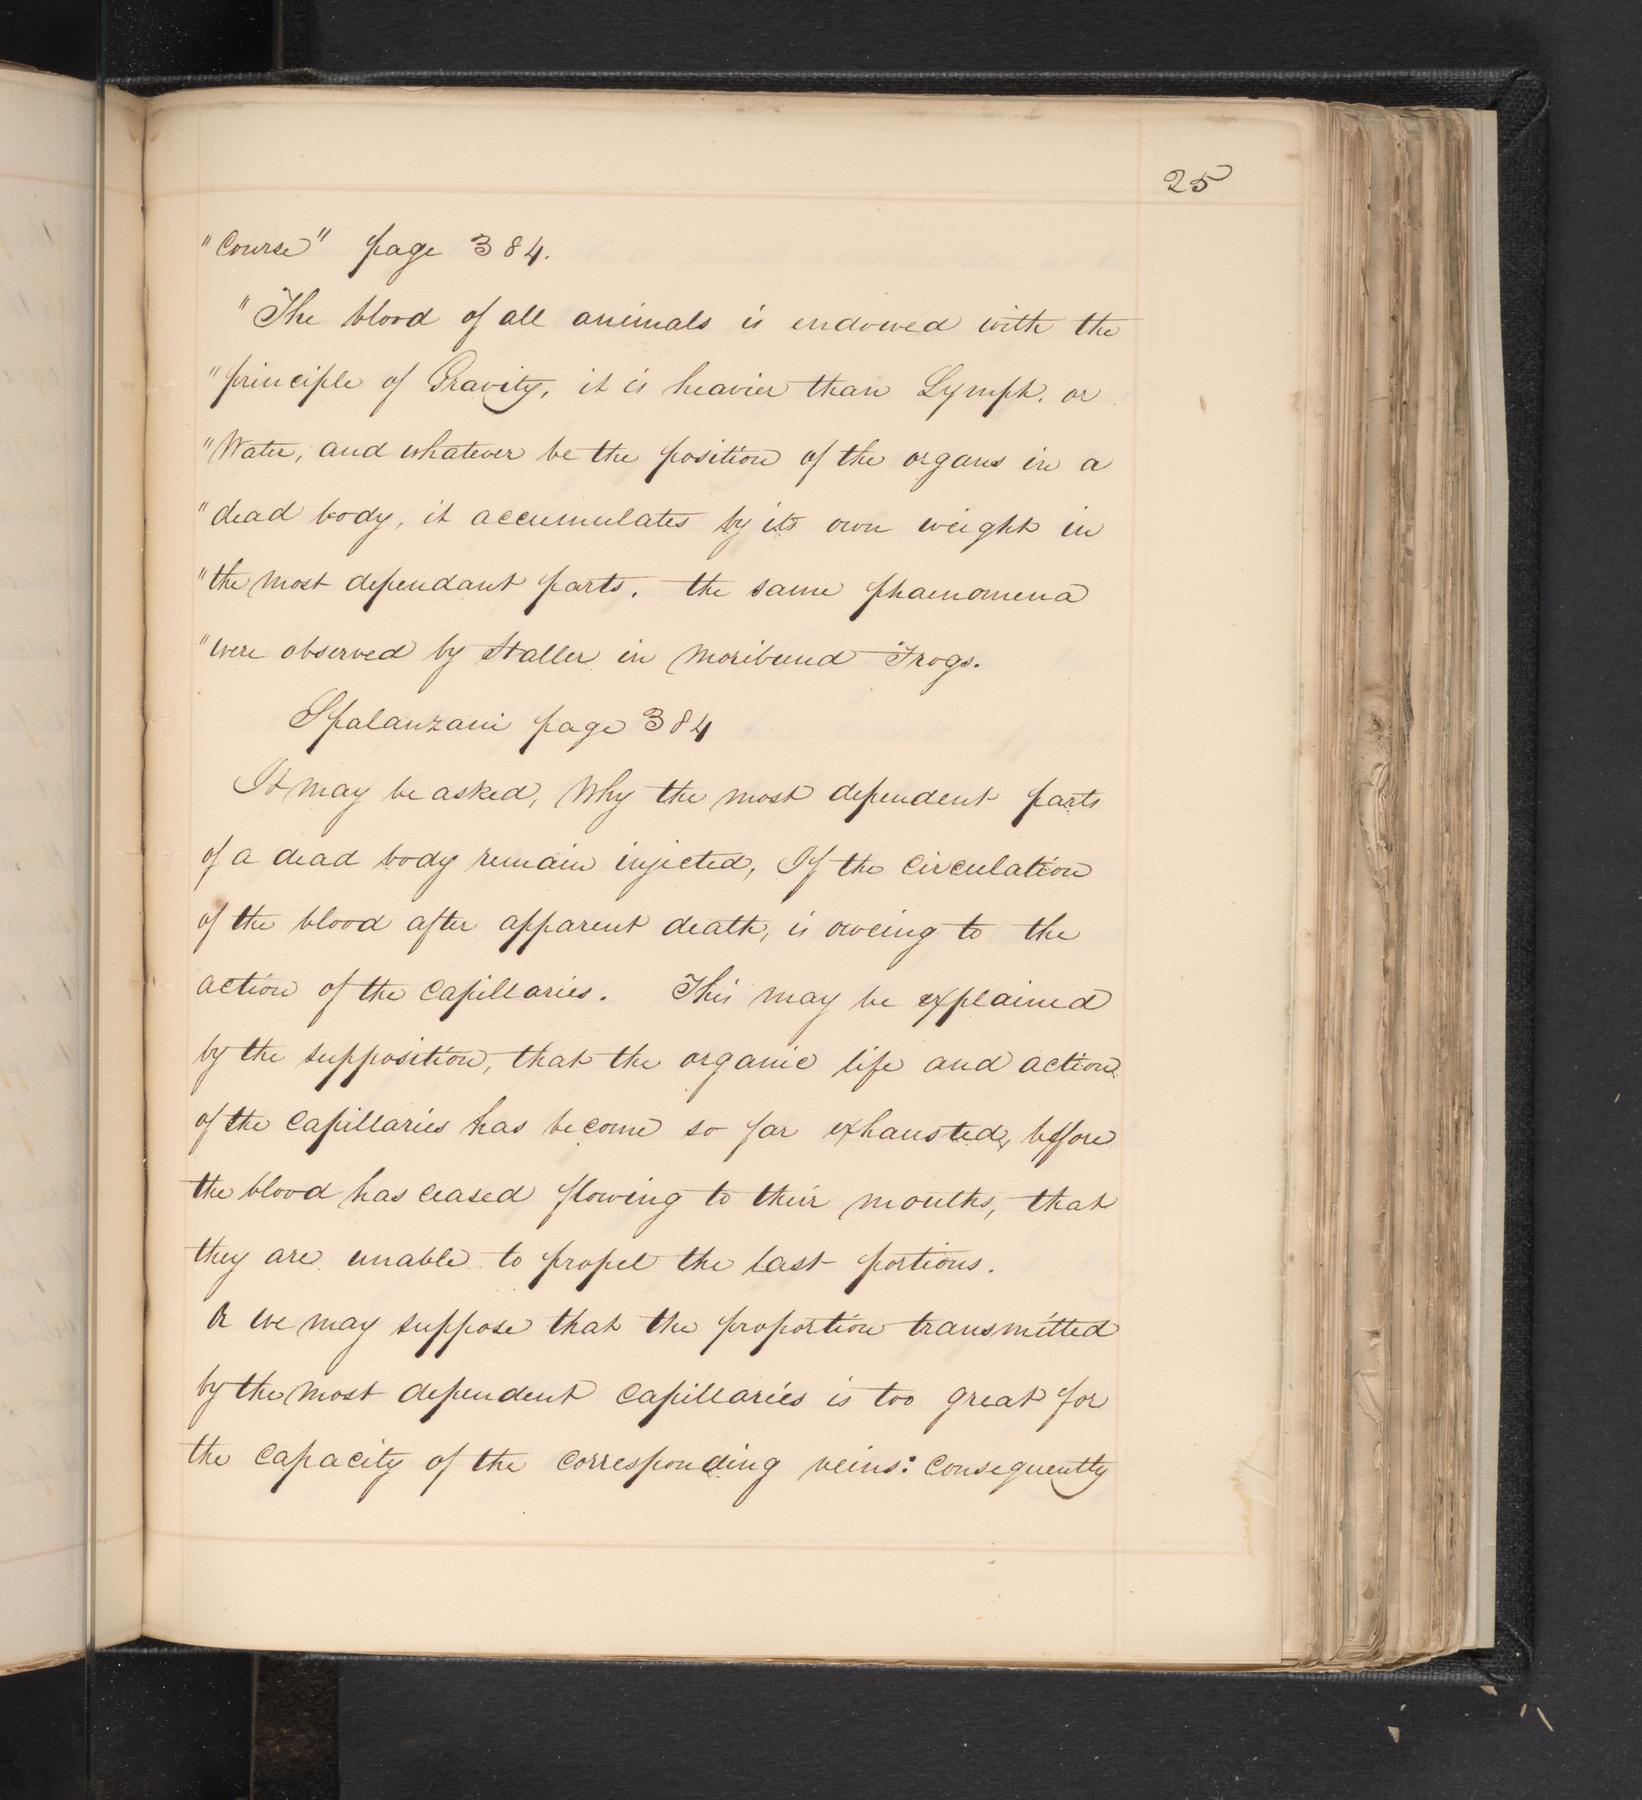 25
"Course" page 384.
"The blood of all animals is endowed with the
"principle of Gravity, it is heavier than Lymph. or
"Water, and whatever be the position of the organs in a
"dead body, it accumulates by its own weight in
"the most dependant parts. the same phaenomena
"were observed by Haller in moribund Frogs.
Spalanzani page 384
It may be asked, Why the most dependent parts
of a dead body remain injected, If the circulation
of the blood after apparent death, is oweing to the
action of the capillaries. This may be explained
by the supposition, that the organic life and action
of the capillaries has become so far exhausted, before
the blood has ceased flowing to their mouths, that
they are unable to propel the last portions.
Or we may suppose that the proportion transmitted
by the most dependent capillaries is too great for
the capacity of the corresponding veins: consequently